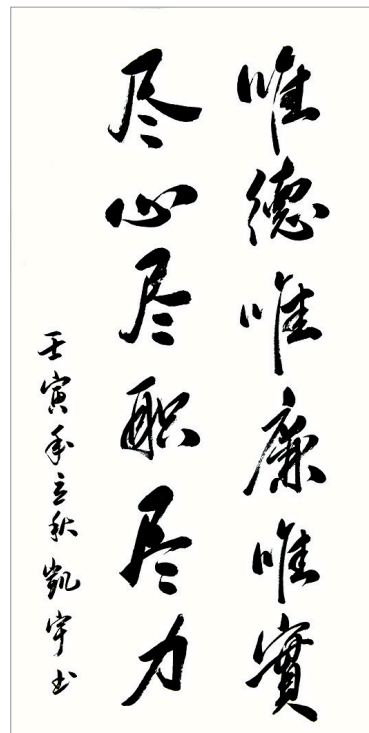 唯德唯廉唯實
尽心尽职尽力
壬寅年立秋凯宇书